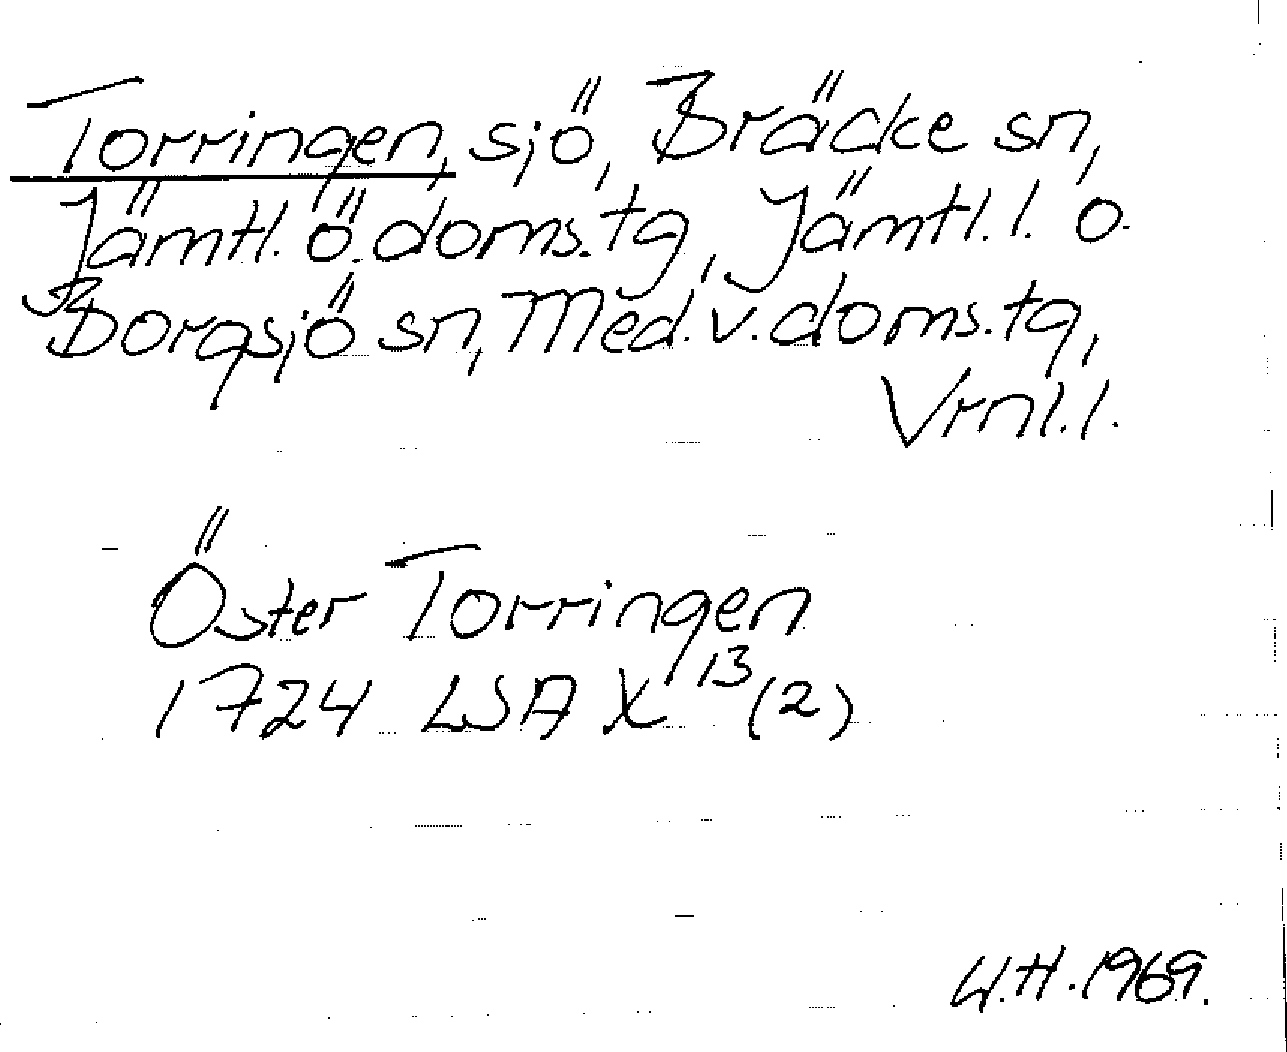 Torringen, sjö, Bräcke sn,
Jämtl. ö. doms. tg, Jämtl. l. o.
Borgsjö sn, Med. v. doms. tg,
Vrnl. l.
Öster Torringen
1724 LSA X¹³ (2)
W.H. 1969.